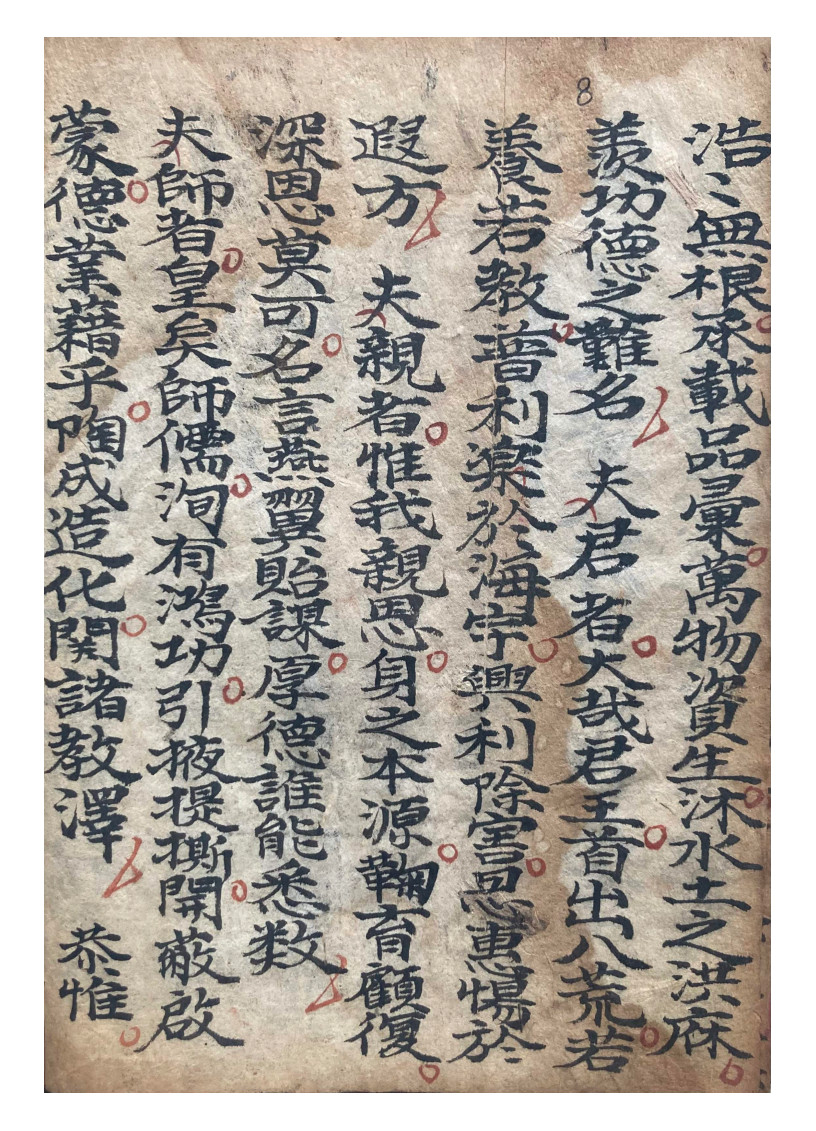 8
浩〻無根承載品彙萬物資生沐水土之洪庥
羨功德之難名 夫君者大哉君王首出八荒若
養若教普利樂於海宇興利除害恩惠惕於
遐方 夫親者惟我親恩身之本源鞠育顧復
深恩莫可名言燕翼貽謀厚德誰能悉数
夫師者皇矣師儒洵有鴻功引掖提撕開蔽啟
蒙德業藉乎陶成造化関諸教澤 恭惟